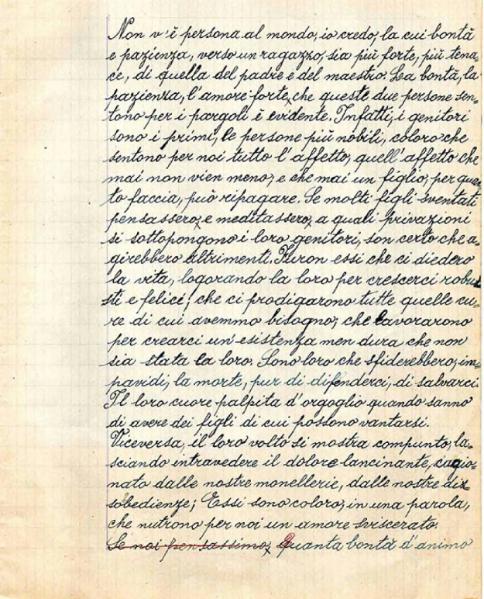 Non v'è persona al mondo, io credo, la cui bontà
e pazienza, verso un ragazzo, sia più forte, più tena-
ce, di quella del padre e del maestro. La bontà, la
pazienza, l'amore forte, che queste due persone sen-
tono per i pargoli è evidente. Infatti, i genitori
sono i primi, le persone più nobili, coloro che
sentono per noi tutto l'affetto, quell'affetto che
mai non vien meno, e che mai un figlio, per quan-
to faccia, può ripagare. Se molti figli sventati
pensassero, e meditassero, a quali privazioni
si sottopongono i loro genitori, son certo che a-
girebbero altrimenti. Furon essi che ci diedero
la vita, logorando la loro per crescerci robu-
sti e felici! che ci prodigarono tutte quelle cu-
re di cui avemmo bisogno, che lavorarono
per crearci un'esistenza men dura che non
sia stata la loro. Sono loro che sfiderebbero, im-
pavidi, la morte, pur di difenderci, di salvarci.
Il loro cuore palpita d'orgoglio quando sanno
di avere dei figli di cui possono vantarsi.
Viceversa, il loro volto si mostra compunto, la-
sciando intravedere il dolore lancinante, cagio-
nato dalle nostre monellerie, dalle nostre di
sobedienze; Essi sono coloro, in una parola,
che nutrono per noi un amore sviscerato.
Se noi pensassimo, Quanta bontà d'animo